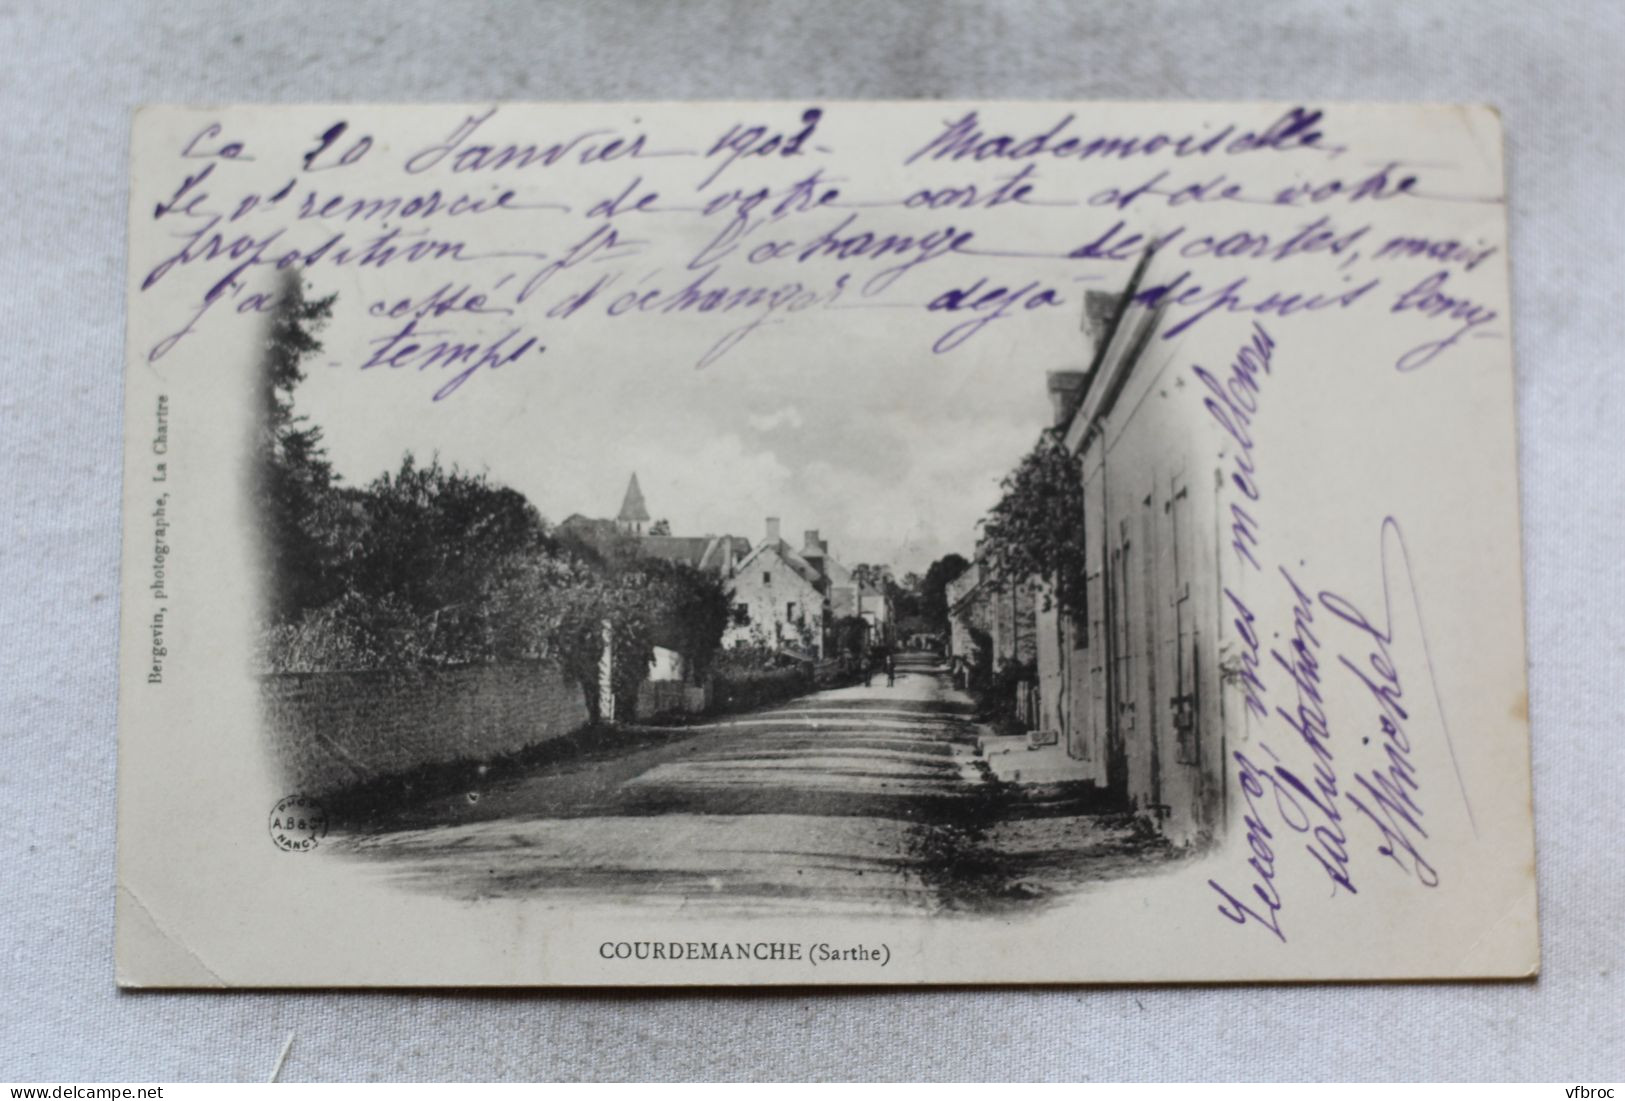 Ce 20 Janvier 1902 - Mademoiselle,
Je vs remercie de votre carte et de votre
proposition pr l'échange des cartes, mais
j'ai cessé d'échanger déjà depuis long-
-temps.
Recevez, mes meilleures
salutations.
Michel
Bergevin, photographe, La Chartre
PHOT
A.B & Cie
NANCY
COURDEMANCHE (Sarthe)
www.delcampe.net
vfbroc